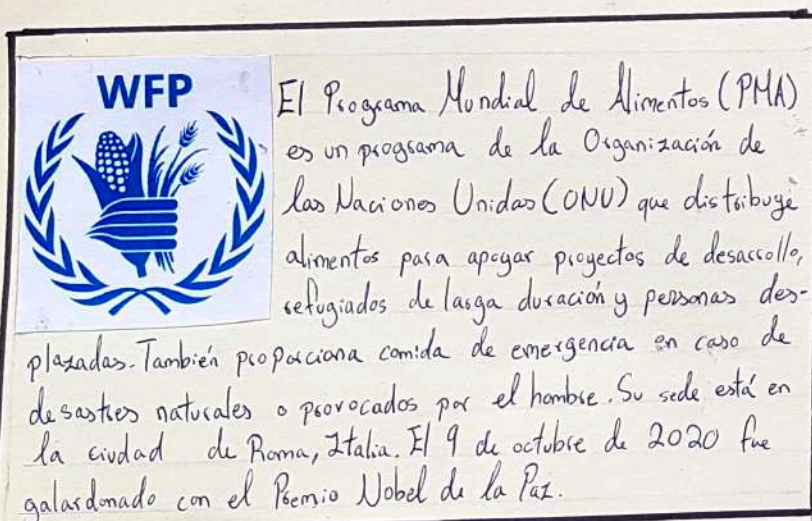 WFP
El Programa Mundial de Alimentos (PMA)
es un programa de la Organización de
las Naciones Unidas (ONU) que distribuye
alimentos para apoyar proyectos de desarrollo,
refugiados de larga duración y personas des-
plazadas. También proporciona comida de emergencia en caso de
desastres naturales o provocados por el hombre. Su sede está en
la ciudad de Roma, Italia. El 9 de octubre de 2020 fue
galardonado con el Premio Nobel de la Paz.